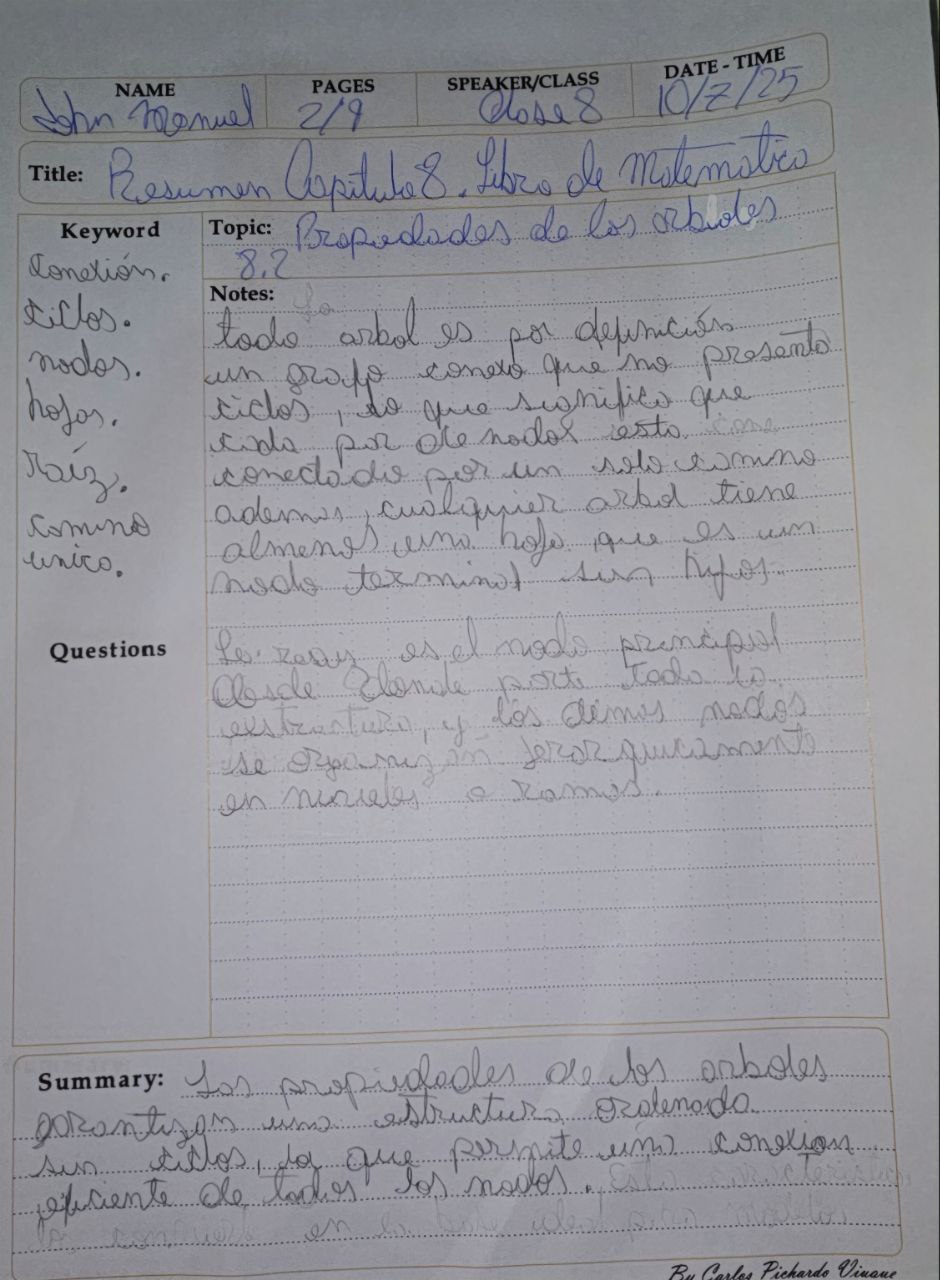 NAME PAGES SPEAKER/CLASS DATE - TIME
John Manuel 2/9 Clase 8 10/7/25
Title: Resumen Capitulo 8. Libro de Matematica
Keyword
Conexión.
Ciclos.
nodos.
hojas.
Raíz.
Camino
unico.
Topic: Propiedades de los arboles
8.2
Notes:
todo arbol es por definición
un grafo conexo que no presenta
ciclos, lo que significa que
cada par de nodos esta
conectado por un solo camino
ademas, cualquier arbol tiene
almenos una hoja, que es un
nodo terminal sin hijos.
Questions
La raiz es el nodo principal
desde donde parte toda la
estructura, y los demas nodos
se organizan jerarquicamente
en niveles o ramas.
Summary: Las propiedades de los arboles
garantizan una estructura ordenada
sin ciclos, lo que permite una conexion
eficiente de todos los nodos. Esta caracteristica
en
By Carlos Pichardo Viuque